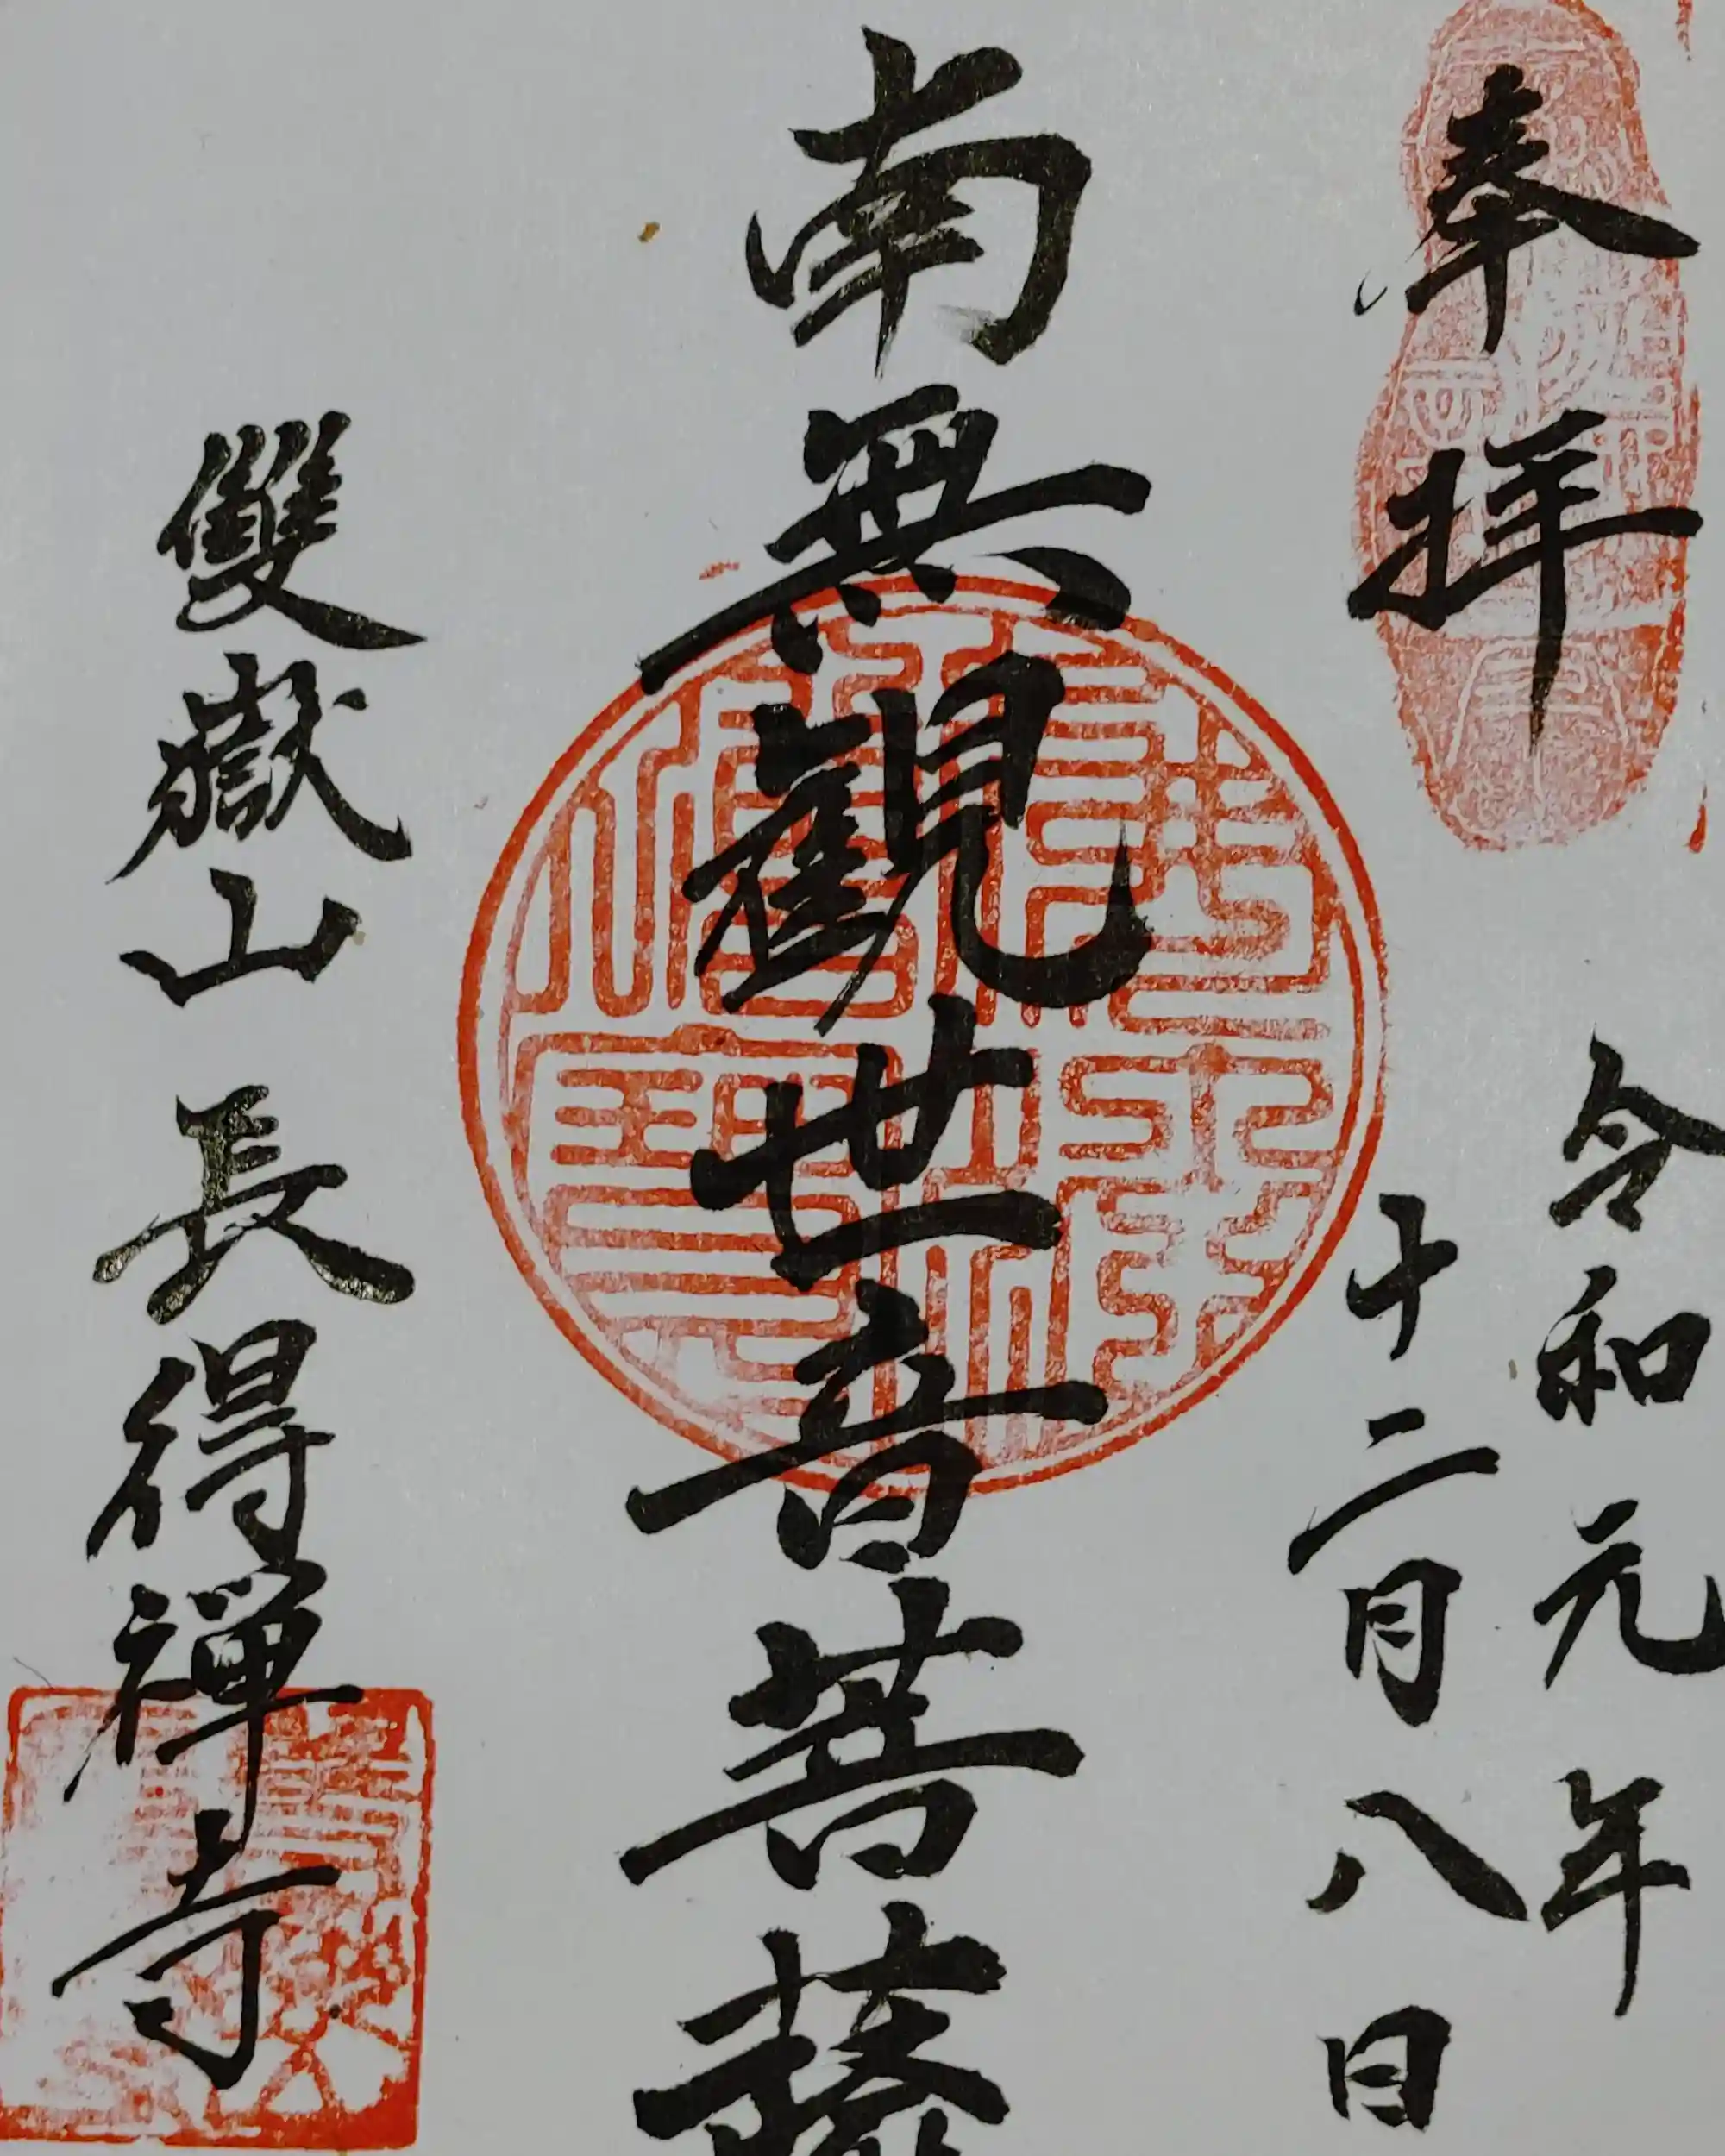 奉拝
令和元年
十二月八日
南無観世音菩薩
雙嶽山長得禅寺